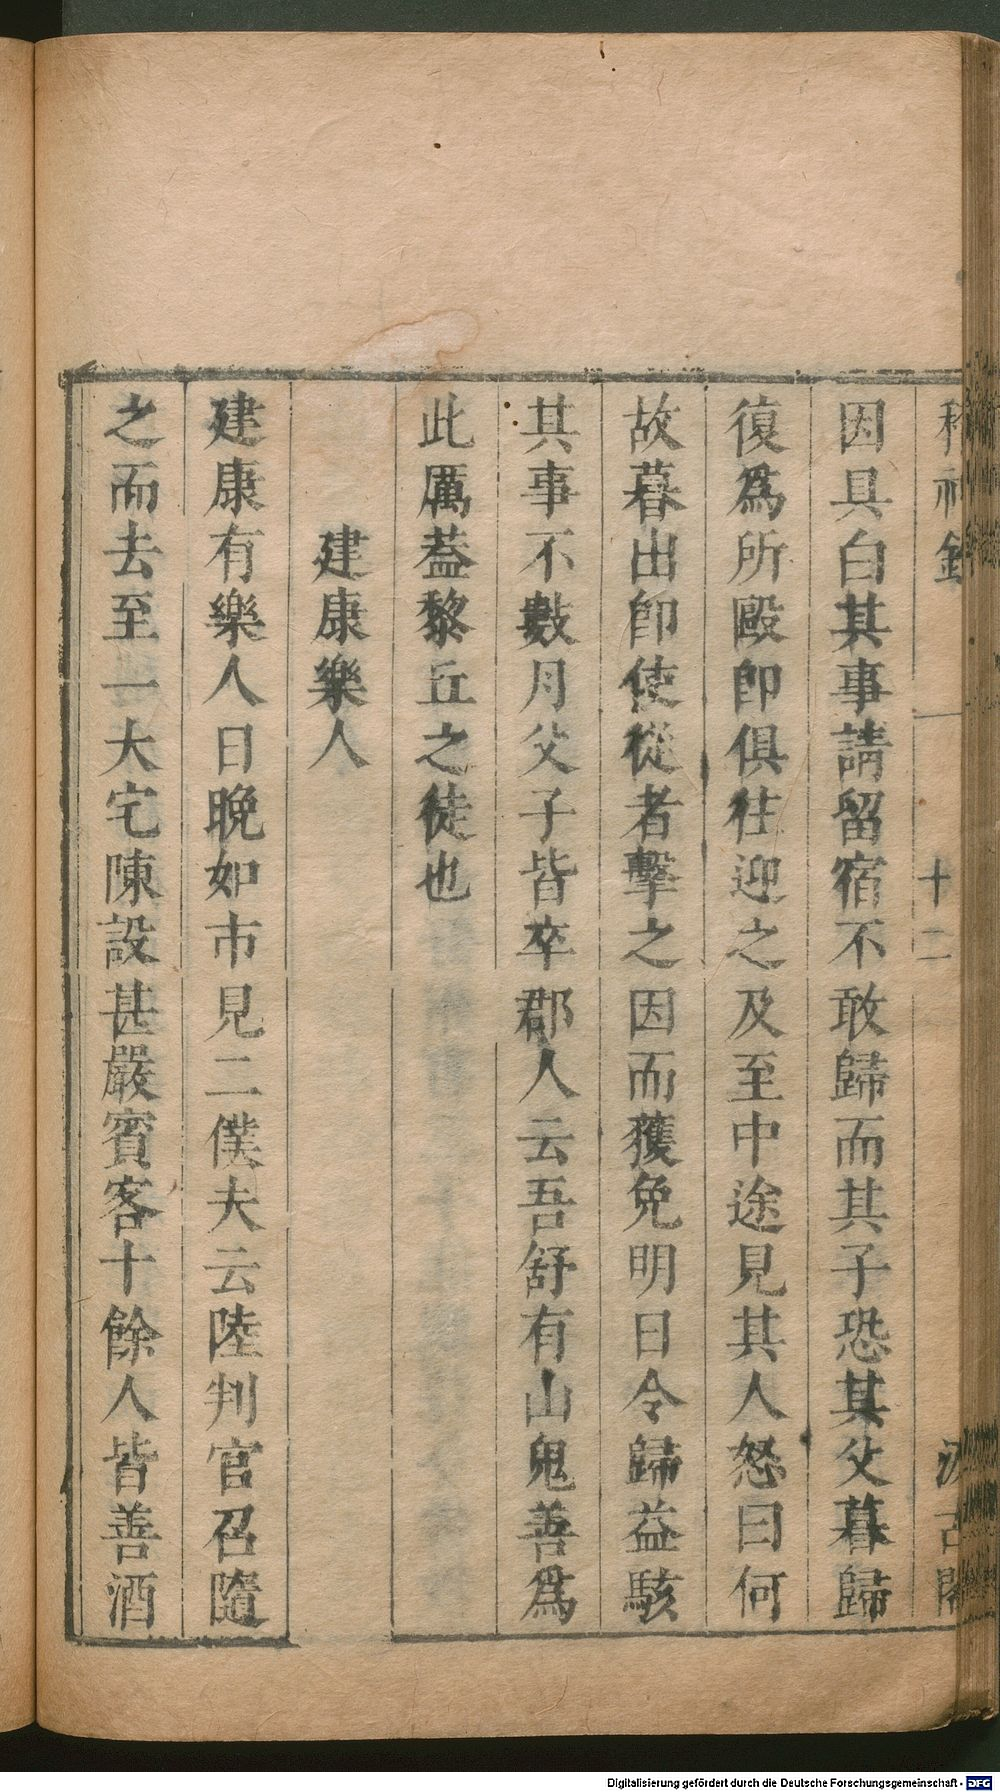 稽神錄 十二 汲古閣
因具白其事請留宿不敢歸而其子恐其父暮歸
復為所毆即俱往迎之及至中途見其人怒曰何
故暮出即使從者擊之因而獲免明日令歸益駭
其事不數月父子皆卒郡人云吾舒有山鬼善為
此厲葢黎丘之徒也
建康樂人
建康有樂人日晚如市見二僕夫云陸判官召隨
之而去至一大宅陳設甚嚴賓客十餘人皆善酒
Digitalisierung gefördert durch die Deutsche Forschungsgemeinschaft - DFG